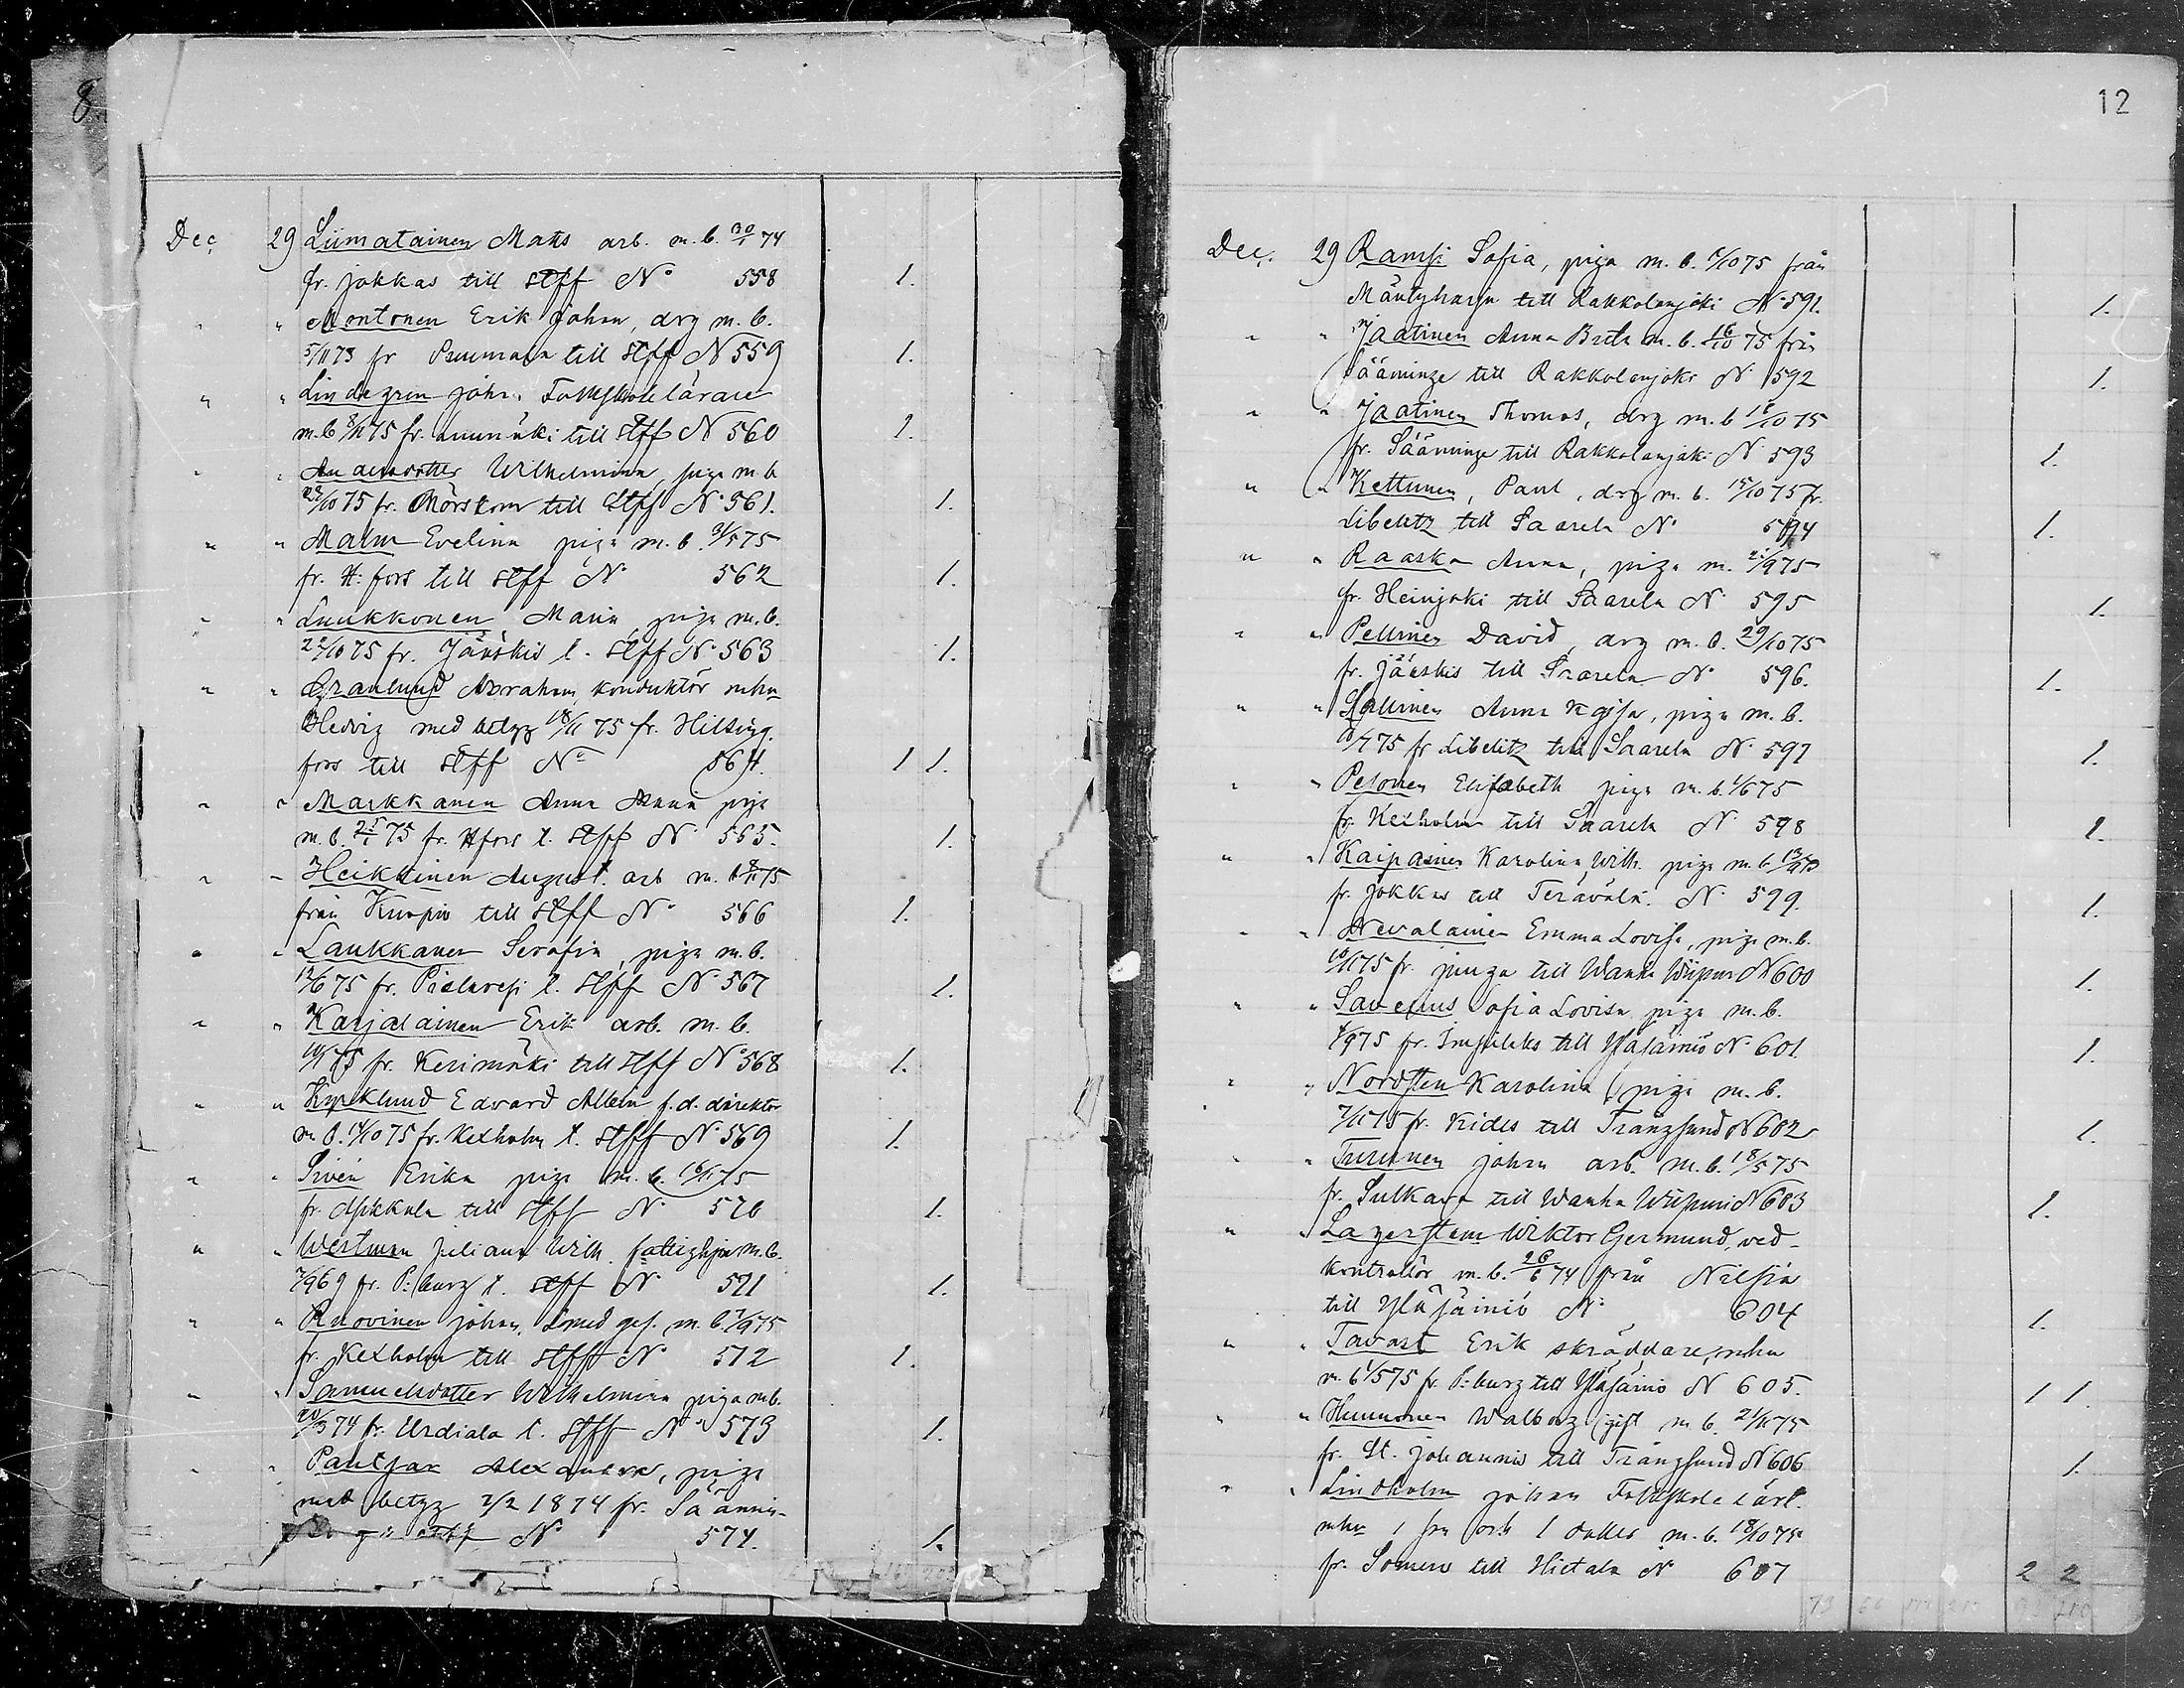 8.
Dec. 29 Liimatainen Mats arb. m.b. 30/1 74
fr. Jokkas till stff No 558 1.
" " Montonen Erik Johan, drg m.b.
5/11 73 fr Puumala till stff N 559 1.
" " Lindegren Joh. Folkskolelärare
m.b 8/11 75 fr. till stff N 560 1.
" " Andersdotter Wilhelmina, piga m.b
23/10 75 fr. Mörskom till stff No 561. 1.
" " Malm Evelina piga m.b. 3/5 75
fr. H:fors till stff No 562 1.
" " Luukkonen Maria piga m.b.
22/10 75 fr. Jääskis t. stff No 563 1.
" " Granlund Abraham, konduktör mhu
Hedvig med betyg 18/11 75 fr. Helsing-
fors till stff No 564. 1 1.
" " Markkanen Anna piga
m.b. 25/1 75 fr. Hfors t. stff No 565. 1.
" " Heikkinen August. arb m.b 8/11 75
från Kuopio till stff No 566 1.
" " Laukkanen Serafia, piga m.b.
12/6 75 fr. Pielavesi t. stff No 567 1.
" " Karjalainen Erik arb. m.b.
10/11 75 fr. Kerimäki till stff No 568 1.
" " Kyrklund Edvard Albin f.d. direktor
m.b. 14/10 75 fr. Kexholm t. stff No 569 1.
" " Sivén Erika piga m.b. 16/11 75
fr. till stff No 570 1.
" " Westman Juliana Wilh. fattighjon m.b.
7/9 69 fr. P:burg t. stff No 571 1.
" " Ruovinen Johan, smed ges. m.b. 7/9 75
fr. Kexholm till stff No 572 1.
" " Samuelsdotter Wilhelmina piga m.b.
20/3 74 fr. Urdiala t. stff No 573 1.
" " Pantsar Alexandra, piga
med betyg 2/2 1874 fr. Säämin-
stff No 574. 1.
12
Dec. 29 Ramsi Sofia, piga m.b. 6/10 75 från
Mäntyharju till Rakkolanjoki No 591. 1.
" " Jaatinen Anna Brita m.b. 16/10 75 från
Sääminge till Rakkolanjoki No 592 1.
" " Jaatinen Thomas, drg m.b 16/10 75
fr. Sääminge till Rakkolanjoki No 593 1.
" " Kettunen, Paul, drg m.b. 15/10 75 fr.
Libelitz till Saarela No 594 1.
" " Raaska Anna, piga m. 21/9 75
fr. Heinjoki till Saarela No 595 1.
" " Pellinen David, drg m.b. 29/10 75
fr. Jääskis till Saarela No 596. 1.
" " Sallinen Anna Kajsa, piga m.b.
10/7 75 fr Libelitz till Saarela No 597 1.
" " Pesonen Elisabeth piga m.b. 1/6 75
fr. Kexholm till Saarela No 598 1.
" " Kaipainen Karolina Wilh. piga m.b. 13/9 75
fr. Jokkas till Terävälä. No 599. 1.
" " Nevalainen Emma Lovisa, piga m.b.
10/11 75 fr. Juuga till Wanha Wiipuri No 600 1.
" " Savenius Sofia Lovisa piga m.b.
4/9 75 fr. Impilaks till Yläsäiniö No 601. 1.
" " Nordsten Karolina piga m.b.
7/11 75 fr. Kides till Trångsund No 602 1.
" " Turunen Johan arb. m.b. 18/5 75
fr. Sulkava till Wanha Wiipuri No 603 1.
" " Lagerstam Wiktor Germund, ved-
kontrollör m.b. 26/6 74 från Nilsiä
till Yläsäiniö No 604 1.
" " Tavast Erik skräddare, mhu
m.b 1/5 75 fr. P:burg till Yläsäiniö N 605. 1 1.
" " Hunnonen Walborg gift m.b. 21/11 75
fr. St. Johannis till Trångsund No 606 1.
" " Lindholm Johan Folkskolelär.
mhu 1 son och 1 dotter m.b. 18/10 75
fr. Somero till Hietala No 607 2 2